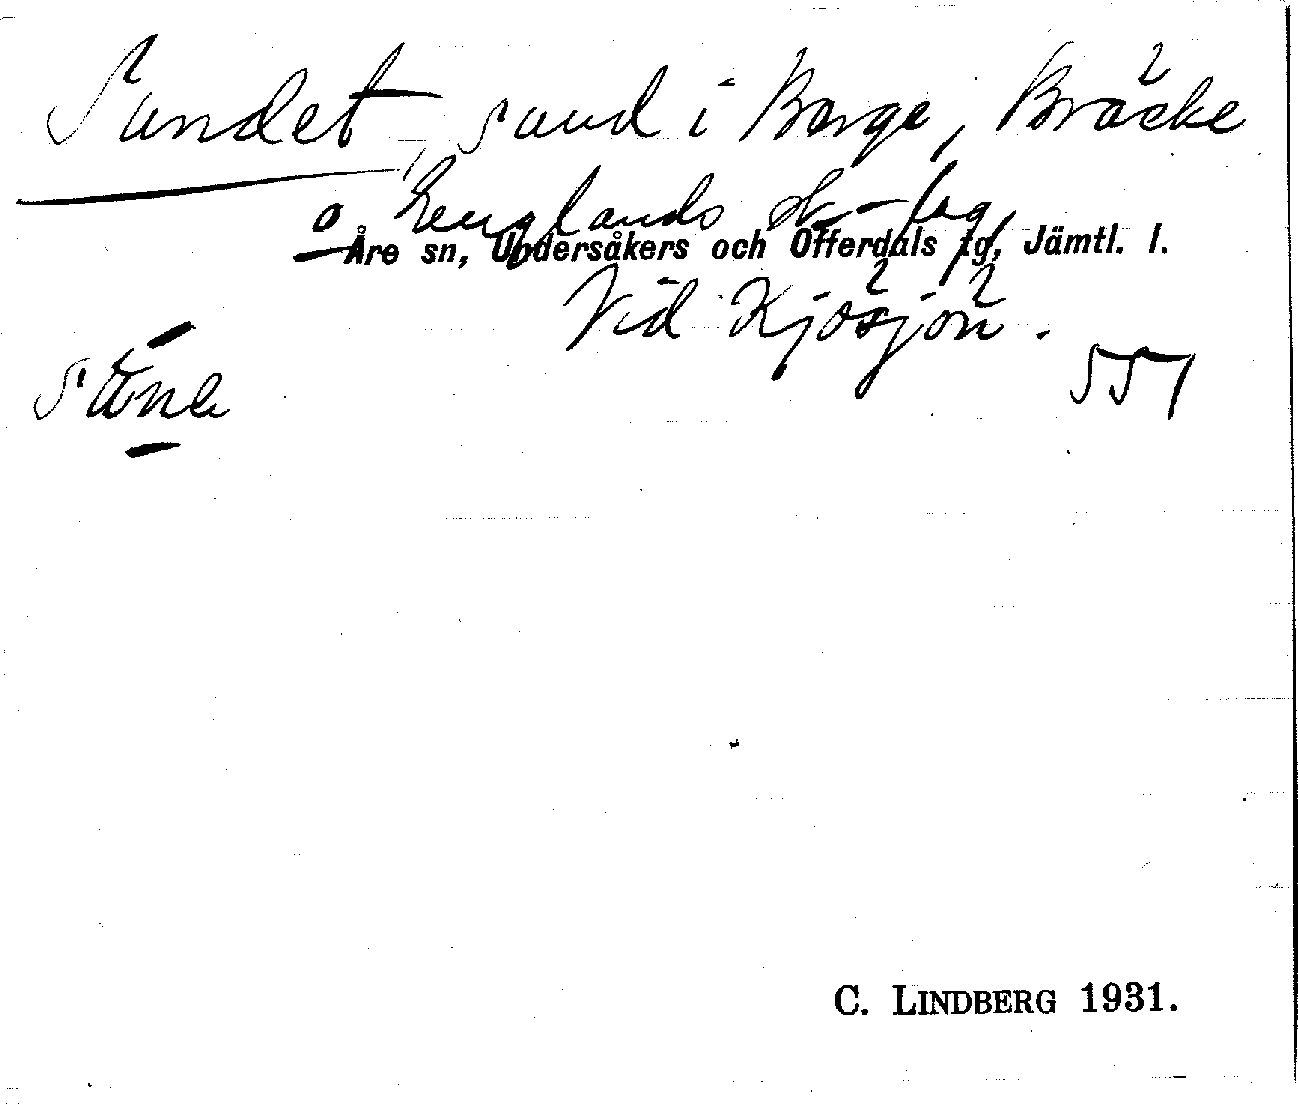 Sundet, sund i Borge, Bräcke
o. Lenglands sk-lag,
Åre sn, Undersåkers och Offerdals tg, Jämtl. l.
Vid Kjösjön.
551
C. LINDBERG 1931.